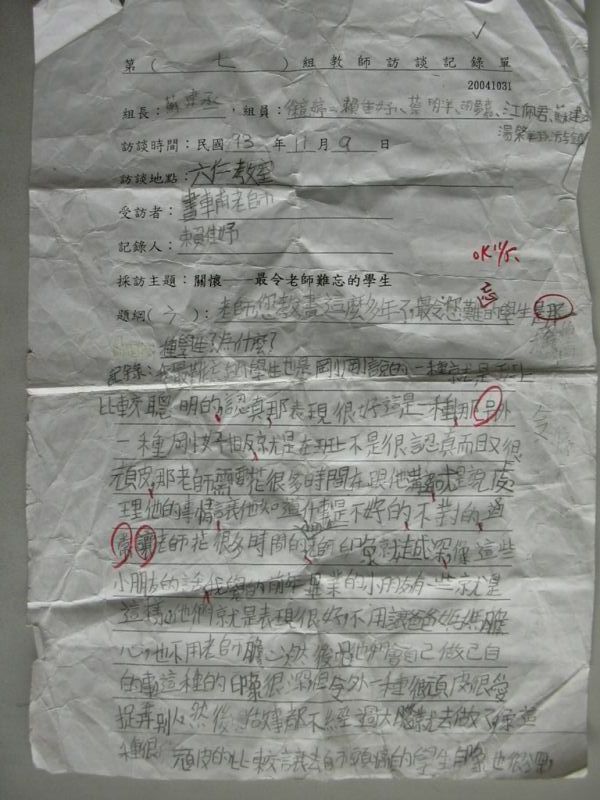 第（ 七 ）組教師訪談記錄單
20041031
組長： ，組員： 賴佳妤、蔡明羊、 江佩君、
訪談時間：民國 93 年 11 月 9 日
訪談地點：六仁教室
受訪者： 老師
記錄人：賴佳妤
OK 11/5.
採訪主題：關懷——最令老師難忘的學生
忘
題綱（六）：老師您教書這麼多年了最令您難的學生是那
種學生？為什麼？
記錄： 學生也是 一種就是班上
比較聰明的，認真那表現很好這是一種，那另外
一種剛好相反就是在班上不是很認真而且又很
頑皮，那老師需要花很多時間在跟他講 就是說處
理他的事情讓他知道這件事是不好的，不對的，通
常讓老師花很多時間的老師印象就越深像這些
小朋友的話我 前年畢業的小朋友有一些就是
這樣，他們就是表現很好，不用讓爸爸媽媽膽
心，也不用老師膽心，然後 他們會自己做己自
的事這種的印象很深但令外一種很頑皮很愛
捉弄別人，然後 做事都不經過大腦就去做了像這
種很頑皮的比較讓老師頭痛的學生印象也很深